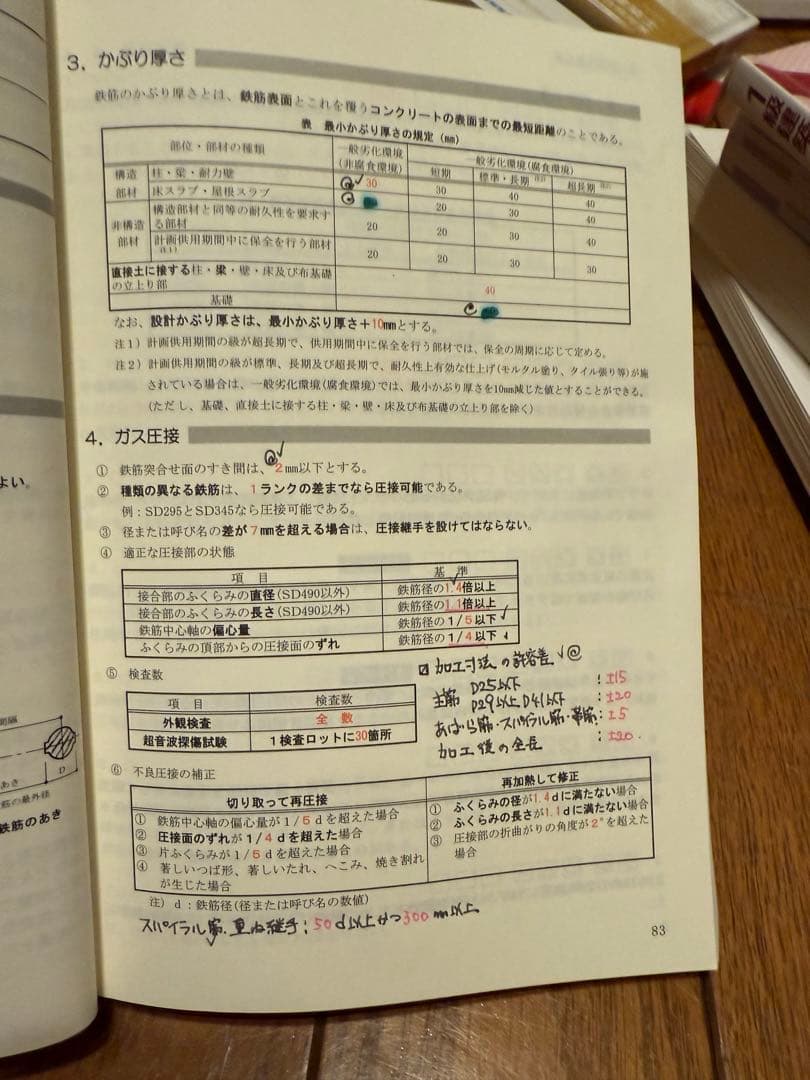 3．かぶり厚さ
鉄筋のかぶり厚さとは、鉄筋表面とこれを覆うコンクリートの表面までの最短距離のことである。
表　最小かぶり厚さの規定（mm）
部位・部材の種類　一般劣化環境（非腐食環境）　一般劣化環境（腐食環境）
短期　標準・長期　超長期
構造部材　柱・梁・耐力壁　30　30　40　40
床スラブ・屋根スラブ　20　30　40
非構造部材　構造部材と同等の耐久性を要求する部材　20　20　30　40
計画供用期間中に保全を行う部材(注1)　20　20　30　30
直接土に接する柱・梁・壁・床及び布基礎の立上り部　40
基礎
なお、設計かぶり厚さは、最小かぶり厚さ＋10mmとする。
注1）計画供用期間の級が超長期で、供用期間中に保全を行う部材では、保全の周期に応じて定める。
注2）計画供用期間の級が標準、長期及び超長期で、耐久性上有効な仕上げ(モルタル塗り、タイル張り等)が施
されている場合は、一般劣化環境(腐食環境)では、最小かぶり厚さを10mm減じた値とすることができる。
(ただし、基礎、直接土に接する柱・梁・壁・床及び布基礎の立上り部を除く)
4．ガス圧接
① 鉄筋突合せ面のすき間は、2mm以下とする。
② 種類の異なる鉄筋は、1ランクの差までなら圧接可能である。
例：SD295とSD345なら圧接可能である。
③ 径または呼び名の差が7mmを超える場合は、圧接継手を設けてはならない。
④ 適正な圧接部の状態
項　目　基　準
接合部のふくらみの直径(SD490以外)　鉄筋径の1.4倍以上
接合部のふくらみの長さ(SD490以外)　鉄筋径の1.1倍以上
鉄筋中心軸の偏心量　鉄筋径の1/5以下
ふくらみの頂部からの圧接面のずれ　鉄筋径の1/4以下
加工寸法の許容差
主筋　D25以下：±15
D29以上D41以下：±20
あばら筋・スパイラル筋・帯筋：±5
加工後の全長：±20
⑤ 検査数
項　目　検査数
外観検査　全数
超音波探傷試験　1検査ロットに30箇所
⑥ 不良圧接の補正
切り取って再圧接　再加熱して修正
① 鉄筋中心軸の偏心量が1/5dを超えた場合
② 圧接面のずれが1/4dを超えた場合
③ 片ふくらみが1/5dを超えた場合
④ 著しいつば形、著しいたれ、へこみ、焼き割れ
が生じた場合
① ふくらみの径が1.4dに満たない場合
② ふくらみの長さが1.1dに満たない場合
③ 圧接部の折曲がりの角度が2°を超えた
場合
注）d：鉄筋径(径または呼び名の数値)
スパイラル筋．重ね継手：50d以上かつ300mm以上
83
よい。
あき
D
筋の最外径
鉄筋のあき
1級建築